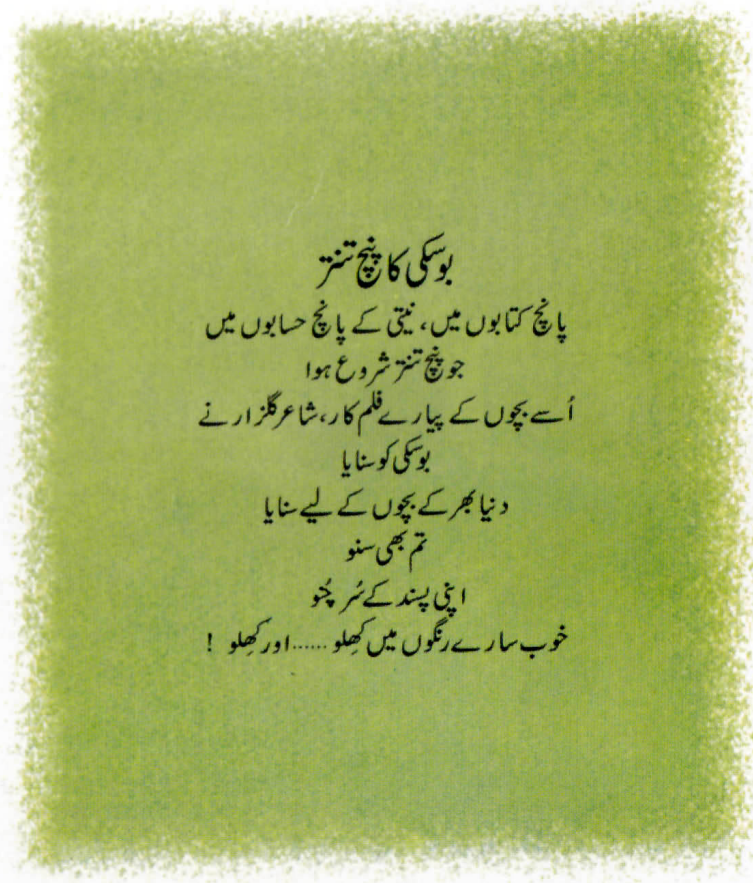 بوسکی کا پنچ تنتر
پانچ کتابوں میں، نیتی کے پانچ حسابوں میں
جو پنچ تنتر شروع ہوا
اُسے بچوں کے پیارے فلم کار، شاعر گلزار نے
بوسکی کو سنایا
دنیا بھر کے بچوں کے لیے سنایا
تم بھی سنو
اپنی پسند کے سُر چُنو
خوب سارے رنگوں میں کھِلو ......اور کھِلو !